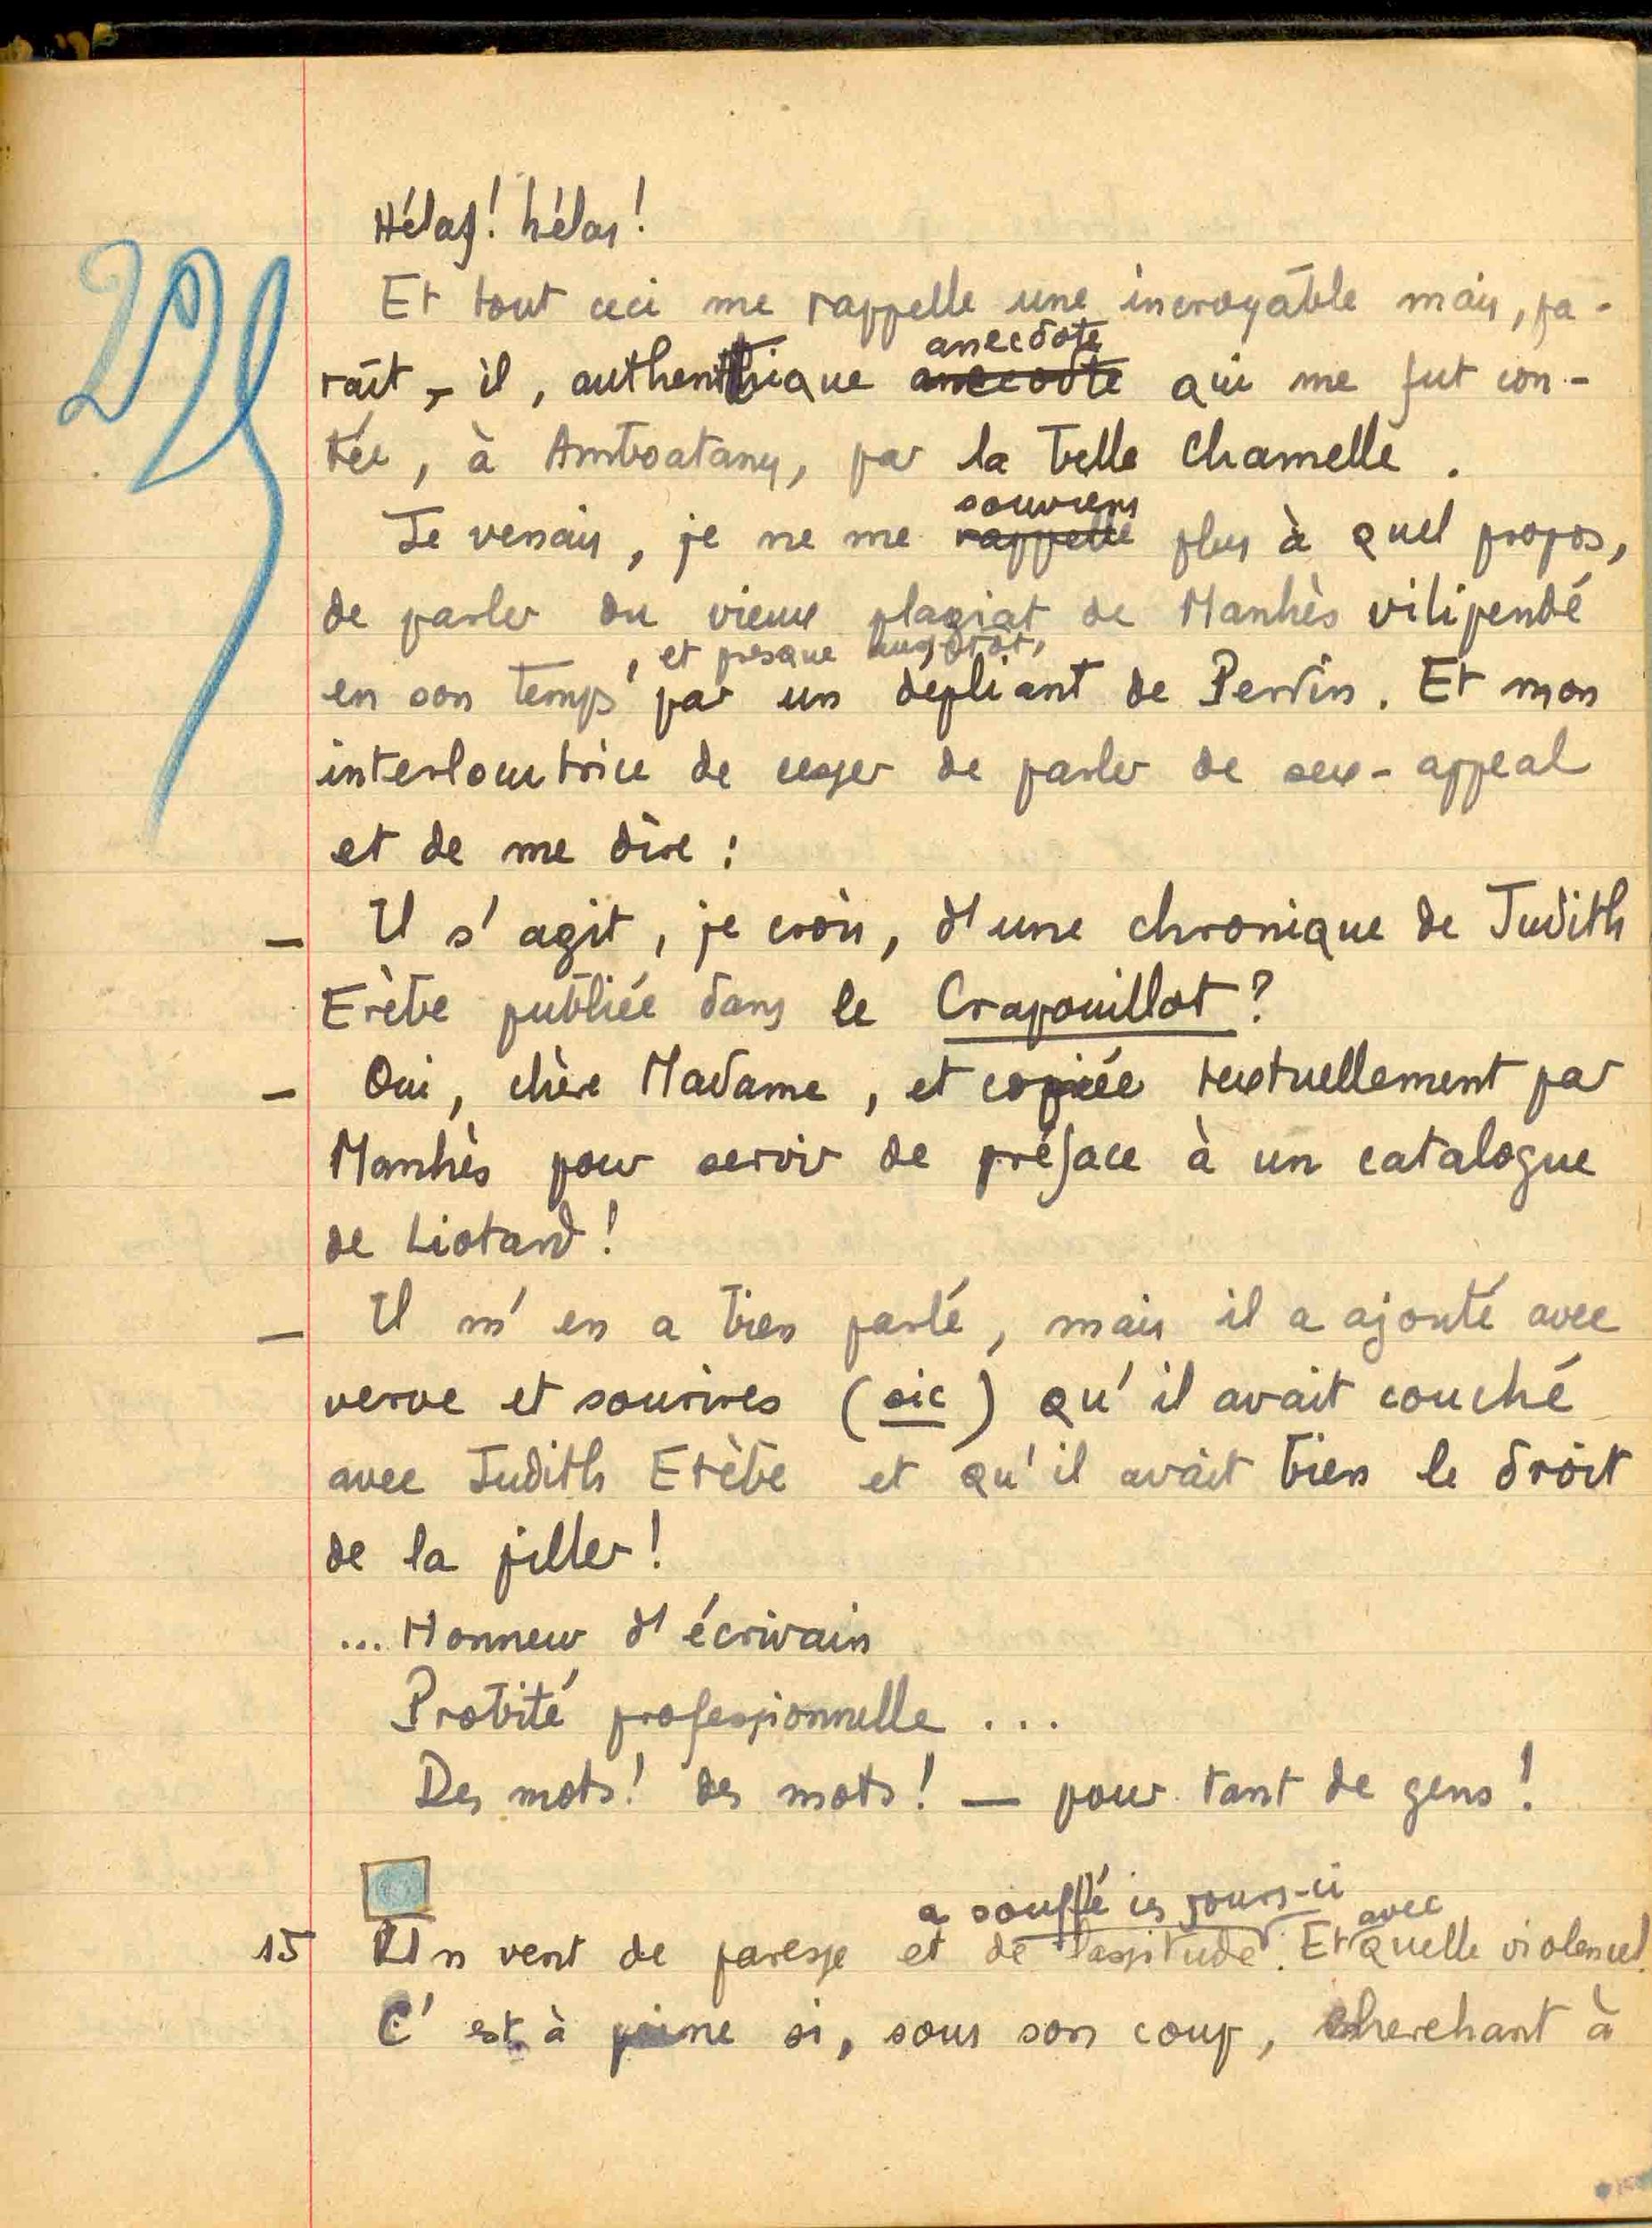 Hélas! hélas!
Et tout ceci me rappelle une incroyable mais, pa-
anecdote
raît-il, authentique anecdote qui me fut con-
tée, à Amboatany, par la belle Chamelle.
souviens
Je venais, je ne me rappelle plus à quel propos,
de parler du vieux plagiat de Manhès vilipendé
, et presque aussitôt,
en son temps par un dépliant de Perdin. Et mon
interlocutrice de cesser de parler de sex-appeal
et de me dire :
— Il s'agit, je crois, d'une chronique de Judith
Erèbe publiée dans le Crapouillot ?
— Oui, chère Madame, et copiée textuellement par
Manhès pour servir de préface à un catalogue
de Liotard !
— Il m'en a bien parlé, mais il a ajouté avec
verve et sourires (sic) qu'il avait couché
avec Judith Erèbe et qu'il avait bien le droit
de la piller !
... Honneur d'écrivain
Probité professionnelle ...
Des mots! des mots! — pour tant de gens!
a soufflé ces jours-ci
avec
15 Un vent de paresse et de lassitude. Et quelle violence!
C'est à peine si, sous son coup, cherchant à